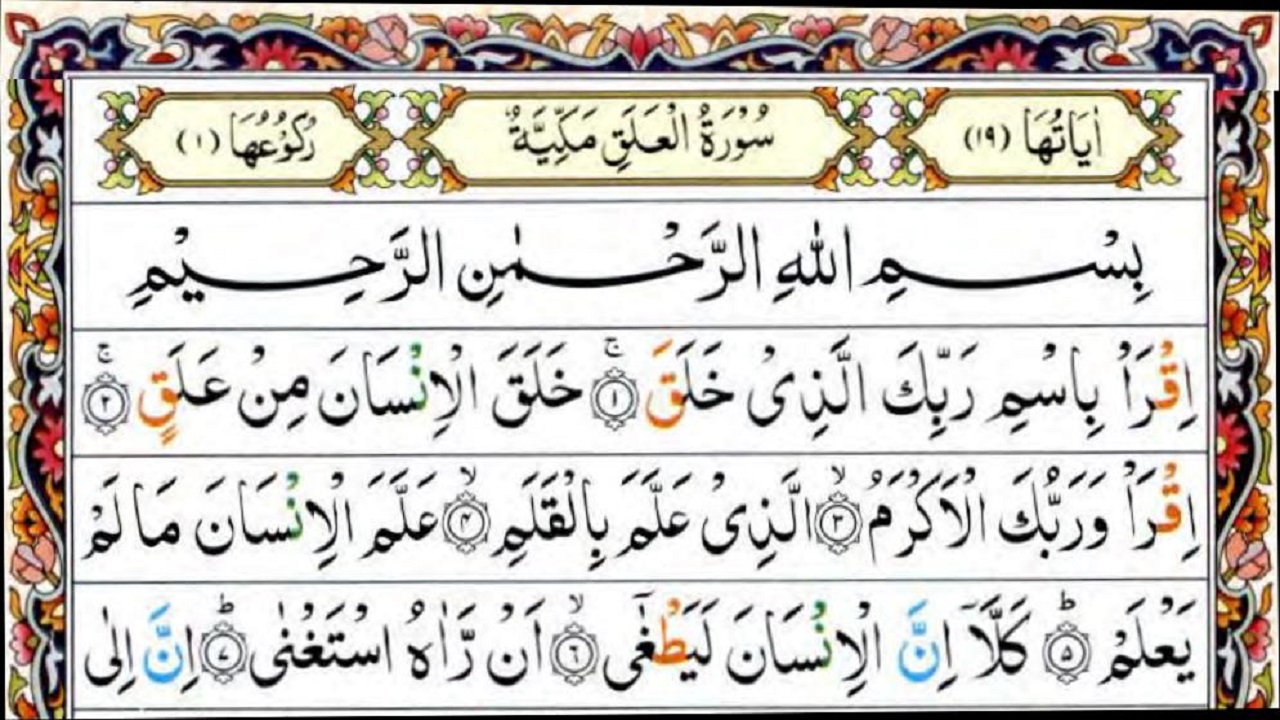 اٰیَاتُهَا (۱۹) سُوْرَةُ الْعَلَقِ مَكِّيَّةٌ رُكُوْعُهَا (۱)
بِسْمِ اللهِ الرَّحْمٰنِ الرَّحِيْمِ
اِقْرَاْ بِاسْمِ رَبِّكَ الَّذِیْ خَلَقَ ۚ﴿۱﴾ خَلَقَ الْاِنْسَانَ مِنْ عَلَقٍ ۚ﴿۲﴾
اِقْرَاْ وَرَبُّكَ الْاَكْرَمُ ۙ﴿۳﴾ الَّذِیْ عَلَّمَ بِالْقَلَمِ ۙ﴿۴﴾ عَلَّمَ الْاِنْسَانَ مَا لَمْ
یَعْلَمْ ؕ﴿۵﴾ كَلَّاۤ اِنَّ الْاِنْسَانَ لَیَطْغٰۤی ۙ﴿۶﴾ اَنْ رَّاٰهُ اسْتَغْنٰی ؕ﴿۷﴾ اِنَّ اِلٰی